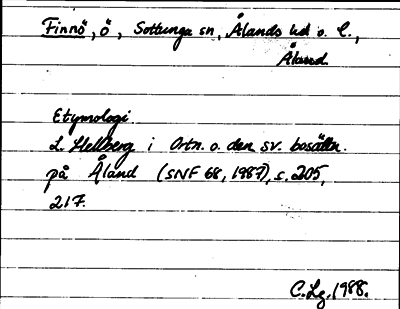 Finnö, ö, Sottunga sn, Ålands hd o. l.,
Åland
Etymologi
L. Hellberg i Ortn. o. den sv. bosättn.
på Åland (SNF 68, 1987), s. 205,
217.
C. Lg. 1988.